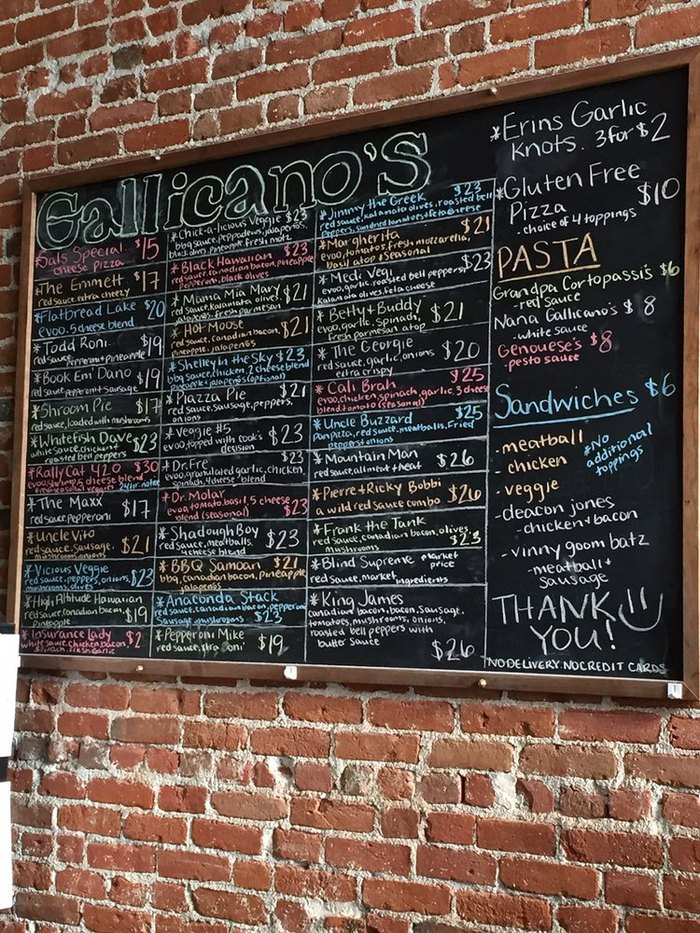 Gallicano's
Sals Special $15
cheese pizza
*The Emmett $17
red sauce, extra cheezy
*Flatbread Lake $20
evoo, 5 cheese blend
*Todd Roni $19
red sauce, pepperoni + pineapple
*Book Em' Dano $19
red sauce, pepperoni + sausage
*Shroom Pie $17
red sauce, loaded with mushrooms
*Whitefish Dave $23
white sauce, chicken +
roasted bell peppers
*RallyCat 420 $30
evoo, shrimp, 5 cheese blend
24hr notice
*The Maxx $17
red sauce, pepperoni
*Uncle Vito $21
red sauce, sausage,
*Vicious Veggie $23
red sauce, peppers, onions,
mushrooms, olives
*High Altitude Hawaiian $19
red sauce, canadian bacon,
pineapple
*Insurance Lady $2
white sauce, chicken, bacon,
spinach, fresh garlic
*Chick-a-licious Veggie $23
bbq sauce, peppadews, jalapenos,
black olives, pineapple, fresh motz
*Black Hawaiian $23
red sauce, canadian bacon, pineapple
pepperoni, black olives
*Mama Mia Mary $21
red sauce, kalamata olives,
jalapenos, fresh parmesan
*Hot Moose $21
red sauce, canadian bacon,
pineapple, jalapenos
*Shelley In the Sky $23
bbq sauce, chicken, 2 cheese blend
pineapple + jalapenos (optional)
*Piazza Pie $21
red sauce, sausage, peppers,
onions
*Veggie #5 $23
evoo, topped with cook's
decision
*Dr. Fre $23
evoo, granulated garlic, chicken,
spinach, 4 cheese blend
*Dr. Molar $23
evoo, tomato, basil, 5 cheese
blend (seasonal)
*Shadough Boy $23
red sauce, meatballs,
4 cheese blend
*BBQ Samoan $21
bbq, canadian bacon, pineapple
jalapenos
*Anaconda Stack
red sauce, canadian bacon, pepperoni
sausage, mushrooms $23
*Pepperoni Mike $19
red sauce, xtra roni
*Jimmy the Greek $23
red sauce, kalamata olives, roasted bell
peppers, sundried tomatoes, feta cheese
*Margherita $21
evoo, tomatoes, fresh mozzarella,
basil atop *seasonal
*Medi Vegi $23
evoo, garlic, roasted bell peppers,
kalamata olives, feta cheese
*Betty + Buddy $21
evoo, garlic, spinach,
fresh parmesan atop
*The Georgie $20
red sauce, garlic, onions
extra crispy
*Cali Brah $25
evoo, chicken, spinach, garlic, 3 cheese
blend, tomato (seasonal)
*Uncle Buzzard $25
pan pizza, red sauce, meatballs, fried
peppers + onions
*Mountain Man $26
red sauce, all meat + heat
*Pierre + Ricky Bobbi $26
a wild red sauce combo
*Frank the Tank
red sauce, canadian bacon, olives,
mushrooms $23
*Blind Supreme market price
red sauce, market ingredients
*King James
canadian bacon, bacon, sausage,
tomatoes, mushrooms, onions,
roasted bell peppers with
butter sauce $26
*Erins Garlic
Knots. 3 for $2
*Gluten Free
Pizza $10
- choice of 4 toppings
PASTA
Grandpa Cortopassi's $6
- red sauce
Nana Gallicano's $8
- white sauce
Genouese's $8
- pesto sauce
Sandwiches $6
- meatball
- chicken
- veggie
*No
additional
toppings
- deacon jones
- chicken + bacon
- vinny goom batz
- meatball +
sausage
THANK
YOU!
NO DELIVERY. NO CREDIT CARDS